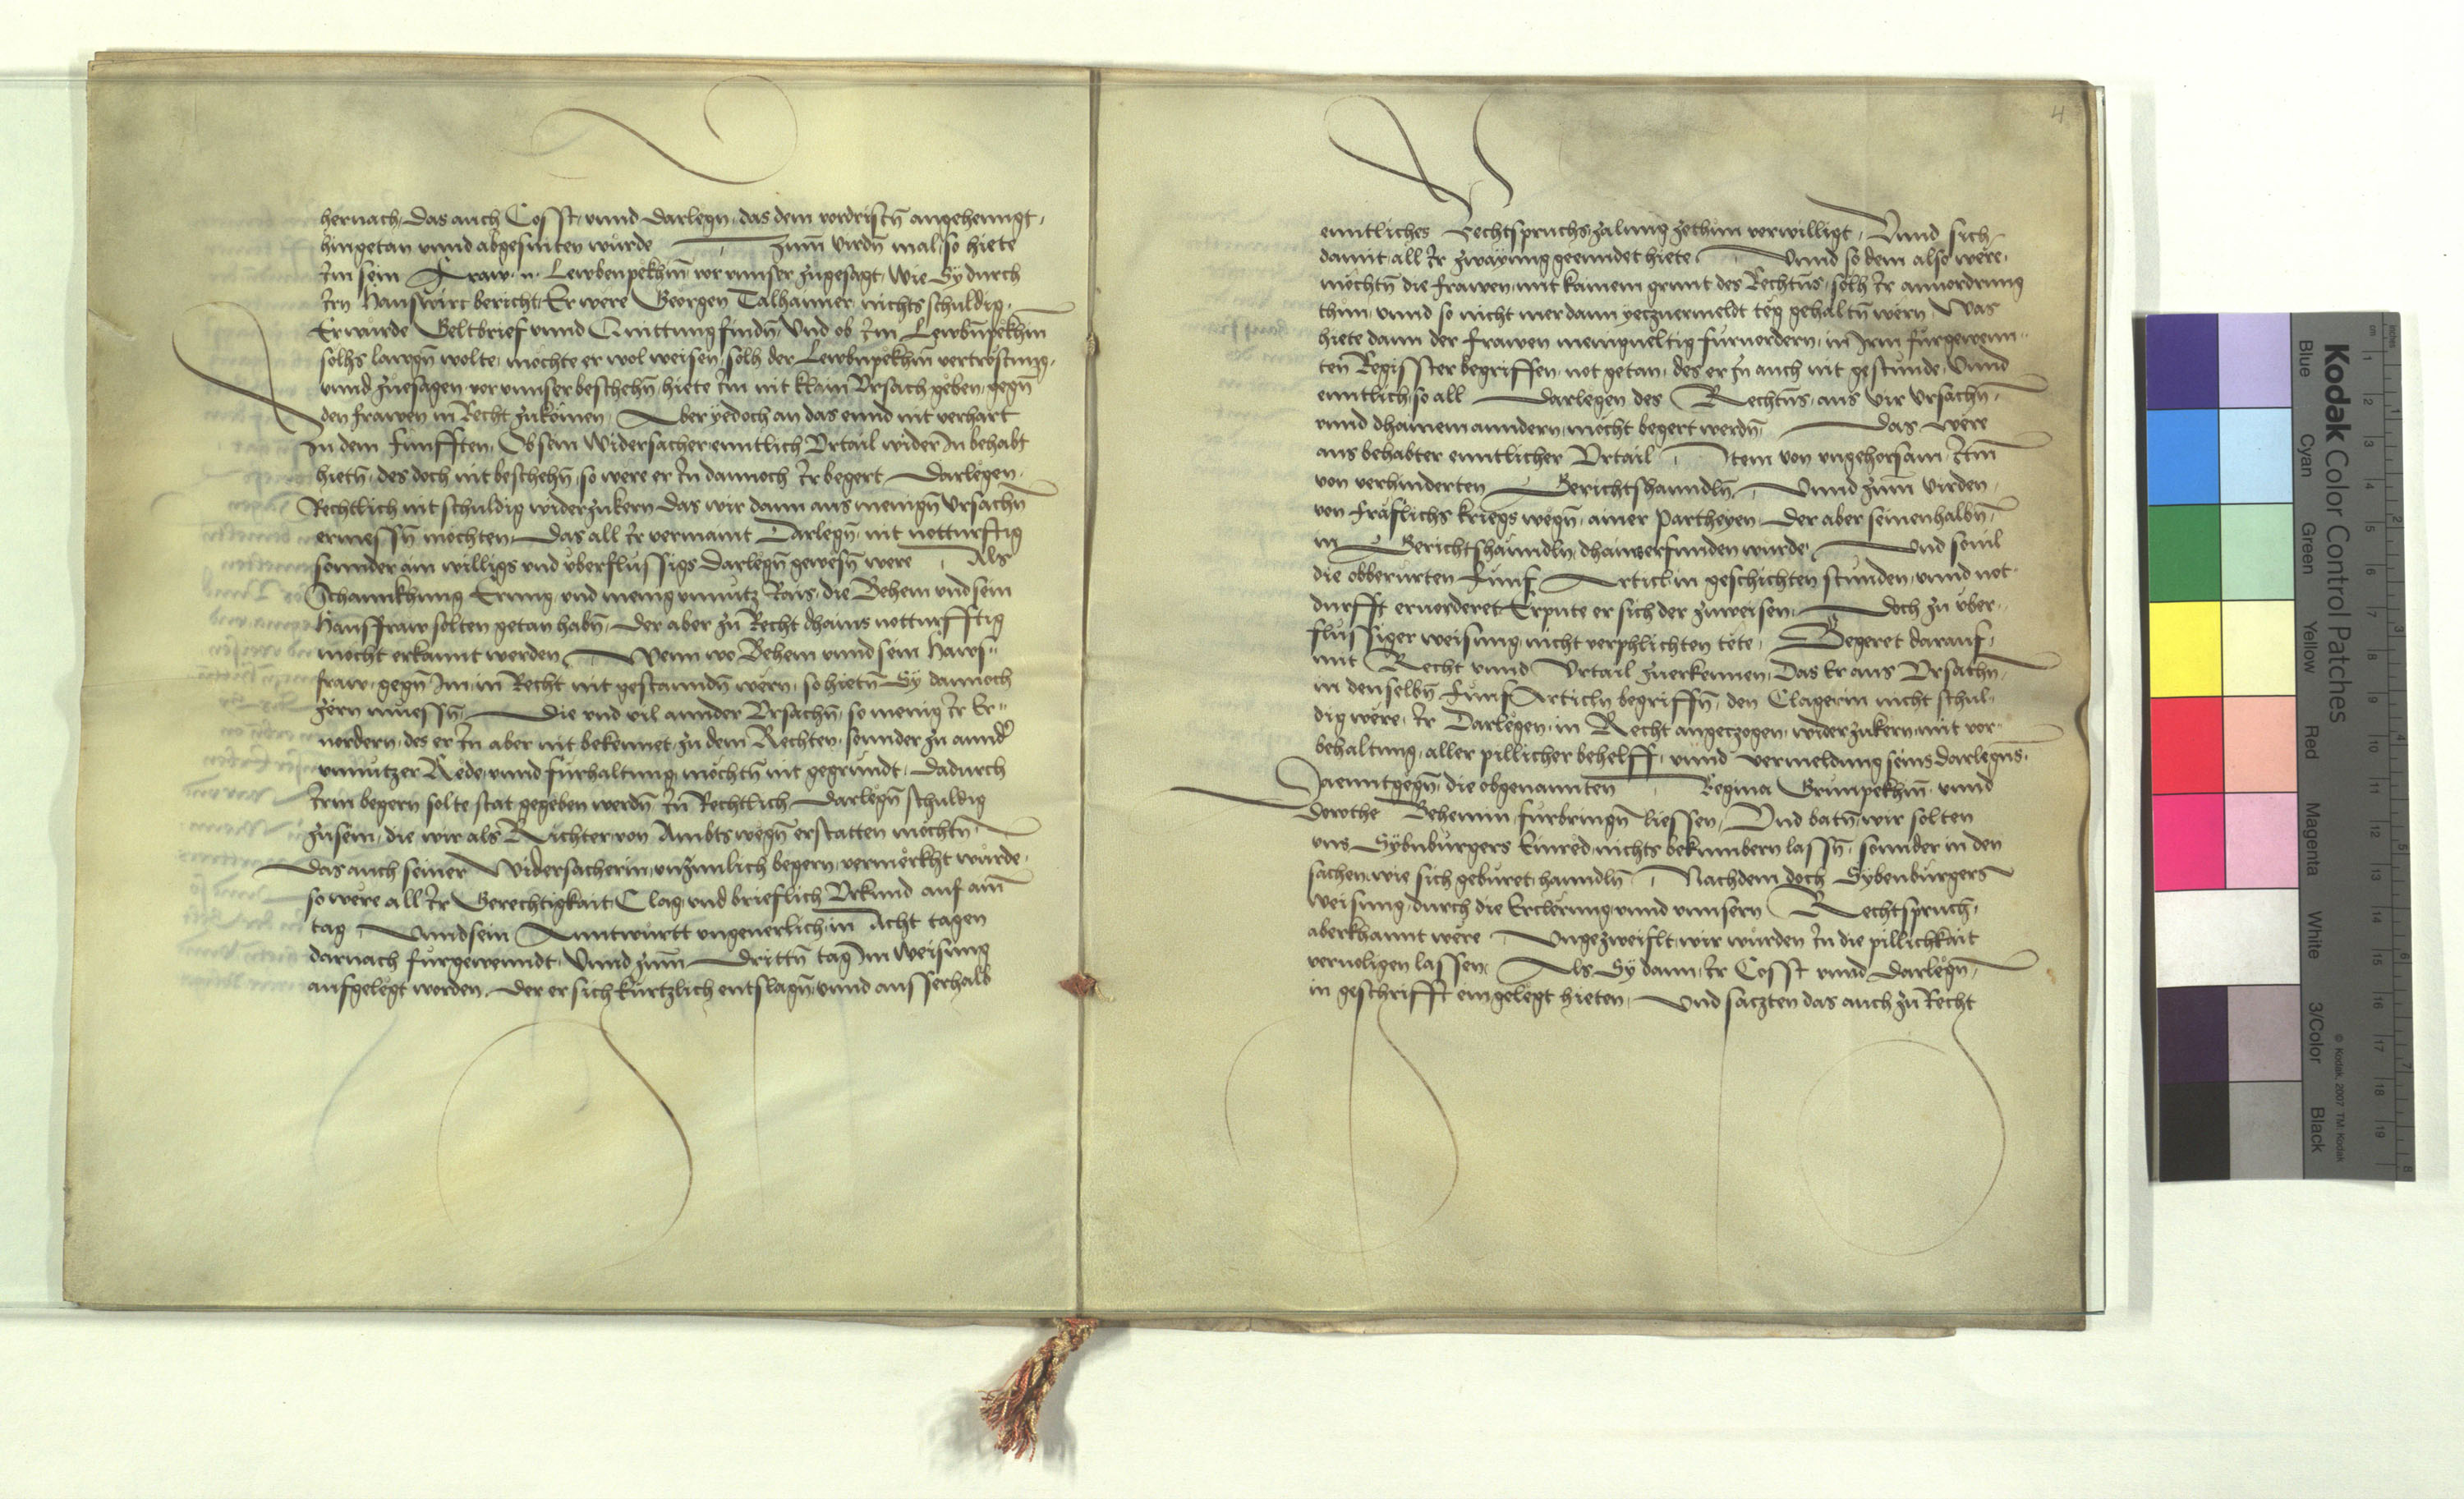 hernach, das auch Cosst, vnnd darlegn, das dem vordristn̄ angehenngt,
hingetan vnnd abgesniten wůrde, Zum̄ virdn̄ mal, so hiete
Im sein fraw. n. Lewbenpekhin̄ vor vnnser zugesagt, wie Sy durch
Irn Hauswirt bericht, Er were Georgen Talhamer, nichts schuldig,
Er wůrde Geltbrief vnnd Quittung findn̄, Vnd ob Im Lewbn̄pekhin̄
solhs lawgn̄ wolte, mochte er wol weisen, solh der Lewbnpekhin̄ vertrostung,
vnnd zuesagen, vor vnnser beschehn̄, hiete Im nit klain Vrsach geben, gegn̄
den frawen in Recht zukömen, Aber yedoch an das ennd nit verhart
In dem funfften, Ob sein Widersacher, enntlich Vrtail wider In behabt
hietn̄, des doch nit beschehn̄, so were er In dannoch Ir begert Darlegen,
Rechtlich nit schuldig widerzukern, das wir dann aus menign̄ Vrsachn̄
ermessn̄ mochten, Das all Ir vermaint Darlegn̄, nit notturftig
sonnder ain willigs vnd vberflussigs Darlegn̄ gewesn̄ were, Als
Schannkhung Erung, vnd menig vnnutz Rais, die Behem vnd sein
Hausfraw solten getan habn̄, der aber zu Recht dhains notturfftig
mocht erkannt werden, Wenn wo Behem vnnd sein Haws-
fraw, gegn̄ Im, in Recht nit gestanndn̄ wern, so hietn̄ Sy dannoch
zern muessn̄, Die vnd vil annder Vrsachn̄, so menig Ir Er-
uordern, des er In aber nit bekennet, zu dem Rechten, sonnder zu annd'
vnnutzer Rede, vnnd furhaltung, mochtn̄ nit gegrundt, Dadurch
Irm begern solte stat gegeben werdn̄, In̄ Rechtlich Darlegn̄ schuldig
zusein, die wir als Richter von Ambts wegn̄ erstatten mochtn̄,
Das auch seiner Widersacherin, vnzimlich begern, vermerkht wůrde,
so were all Ir Gerechtigkait, Clag, vnd brieflich Vrkund auf ain̄
tag, Vnnd sein Anntwurtt vngeuerlich, in Acht tagen
darnach furgewenndt, Vnnd zum̄ Drittn̄ tag Im Weisung
aufgelegt worden, Der er sich kurtzlich entslagn̄, vnnd ausserhalb
4
enntliches Rechtspruchs, zalung zethun verwilligt, Vnnd sich
damit, all Ir zwayung geenndet hiete, Vnnd so dem also were,
mochtn̄ die frawen, mit kainem grunt des Rechtn̄s, solh Ir annordrung
thun, vnnd so nicht mer dann yeczuermeldt teg gehaltn̄ wern, Was
hiete dann der frawen menigueltig furuordern, in Irm furgewenn-
ten Regisster begriffen, not getan, des er In auch nit gestunde, Vnnd
enntlich, so all Darlegen des Rechtn̄s, aus vir Vrsachn̄,
vnnd dhainem anndern, mocht begert werdn̄, Das were
aus behabter enntlicher Vrtail, Item von vngehorsam, Itm̄
von verhinderten Gerichtshanndln̄, Vnnd zum̄ virden,
von fräflichs kriegs wegn̄, ainer Partheyen, Der aber seinenhalbn̄,
in Gerichtshanndln, dhains erfunden wurde, Vnd souil
die obberurten Funf Articl, in geschichten stunden, vnnd not-
durfft eruorderet, Erpute er sich der zuweisen, Doch zu vber-
flussiger weisung, nicht verphlichten tete, Begeret darauf,
mit Recht vnnd Vrtail zuerkennen, Das Er aus Vrsachn̄,
in denselbn̄ Funf Articln begriffn̄, den Clagerin nicht schul-
dig were, Ir Darlegen, in Recht angeczogen, widerzukern, mit vor-
behaltung, aller pillicher behelff, vnnd vermeldung seins darlegn̄s,
Daenntgegn̄, die obgenannten Regina Grunpekhin̄, vnnd
dorothe Behemin, furbringn̄ liessen, Vnd batn̄, wir solten
vns Sybnburgers Einred, nichts bekumbern lassn̄, sonnder in den
sachen, wie sich geburet, hanndln̄, Nachdem doch Sybenburgers
weisung, durch die Erclerung, vnnd vnnsern Rechtspruch,
aberkhannt were, Vngezweiflt, wir wurden In die pillichkait
veruolgen lassen, Als Sy dann, Ir Cosst vnnd Darlegn̄,
in geschrifft eingelegt hieten, Vnd saczten das auch zu Recht
Kodak Color Control Patches
Blue Cyan Green Yellow Red Magenta White 3/Color Black
© Kodak, 2007 TM: Kodak